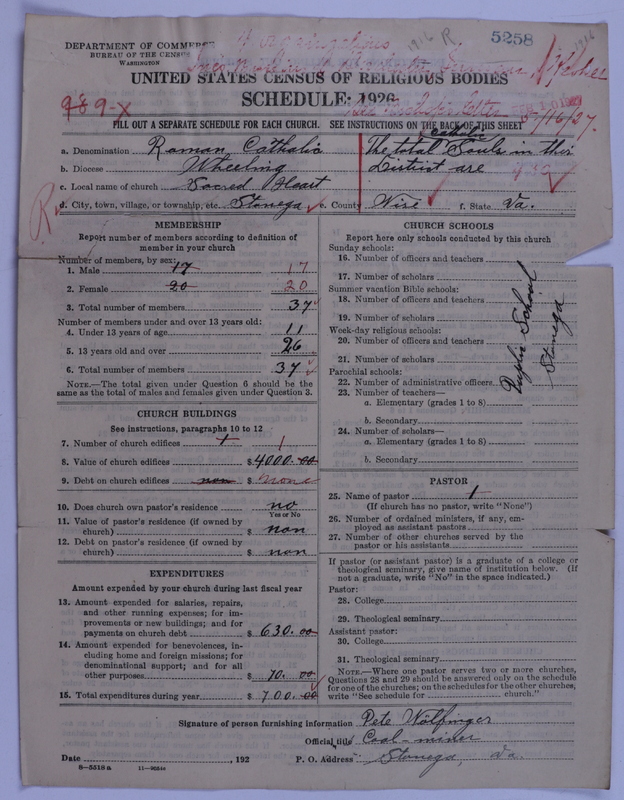 DEPARTMENT OF COMMERCE
BUREAU OF THE CENSUS
WASHINGTON
1916 R
5258
UNITED STATES CENSUS OF RELIGIOUS BODIES
SCHEDULE: 1926
989-X
FILL OUT A SEPARATE SCHEDULE FOR EACH CHURCH. SEE INSTRUCTIONS ON THE BACK OF THIS SHEET
a. Denomination Roman Catholic
b. Diocese Wheeling
c. Local name of church Sacred Heart
The total Catholic Souls in this
District are
R
d. City, town, village, or township, etc. Stonega e. County Wise f. State Va.
MEMBERSHIP
Report number of members according to definition of
member in your church
Number of members, by sex:
1. Male 17 17
2. Female 20 20
3. Total number of members 37
Number of members under and over 13 years old:
4. Under 13 years of age 11
5. 13 years old and over 26
6. Total number of members 37
NOTE.—The total given under Question 6 should be the
same as the total of males and females given under Question 3.
CHURCH BUILDINGS
See instructions, paragraphs 10 to 12
7. Number of church edifices 1 1
8. Value of church edifices $ 4000.00
9. Debt on church edifices non $ none
10. Does church own pastor's residence no
Yes or No
11. Value of pastor's residence (if owned by
church) $ non
12. Debt on pastor's residence (if owned by
church) $ non
EXPENDITURES
Amount expended by your church during last fiscal year
13. Amount expended for salaries, repairs,
and other running expenses; for im-
provements or new buildings; and for
payments on church debt $ 630.00
14. Amount expended for benevolences, in-
cluding home and foreign missions; for
denominational support; and for all
other purposes $ 70.00
15. Total expenditures during year $ 700.00
CHURCH SCHOOLS
Report here only schools conducted by this church
Sunday schools:
16. Number of officers and teachers
17. Number of scholars
Summer vacation Bible schools:
18. Number of officers and teachers
19. Number of scholars
Week-day religious schools:
20. Number of officers and teachers
21. Number of scholars
Parochial schools:
22. Number of administrative officers
23. Number of teachers—
a. Elementary (grades 1 to 8)
b. Secondary
24. Number of scholars—
a. Elementary (grades 1 to 8)
b. Secondary
School
Stonega
PASTOR
25. Name of pastor 1
(If church has no pastor, write "None")
26. Number of ordained ministers, if any, em-
ployed as assistant pastors
27. Number of other churches served by the
pastor or his assistants
If pastor (or assistant pastor) is a graduate of a college or
theological seminary, give name of institution below. (If
not a graduate, write "No" in the space indicated.)
Pastor:
28. College
29. Theological seminary
Assistant pastor:
30. College
31. Theological seminary
NOTE.—Where one pastor serves two or more churches,
Questions 28 and 29 should be answered only on the schedule
for one of the churches; on the schedules for the other churches,
write "See schedule for church."
Signature of person furnishing information Pete Wolfinger
Official title Coal-miner
Date , 192 P. O. Address Stonega, Va.
8-5518a 11-96546